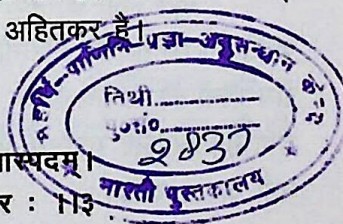 अहितकर है।
महर्षि पाणिनि प्रज्ञा-अनुसन्धान केन्द्र
तिथी..............
पु०सं०..............
2837
भारती पुस्तकालय
ास्पदम्।
र : ।।३